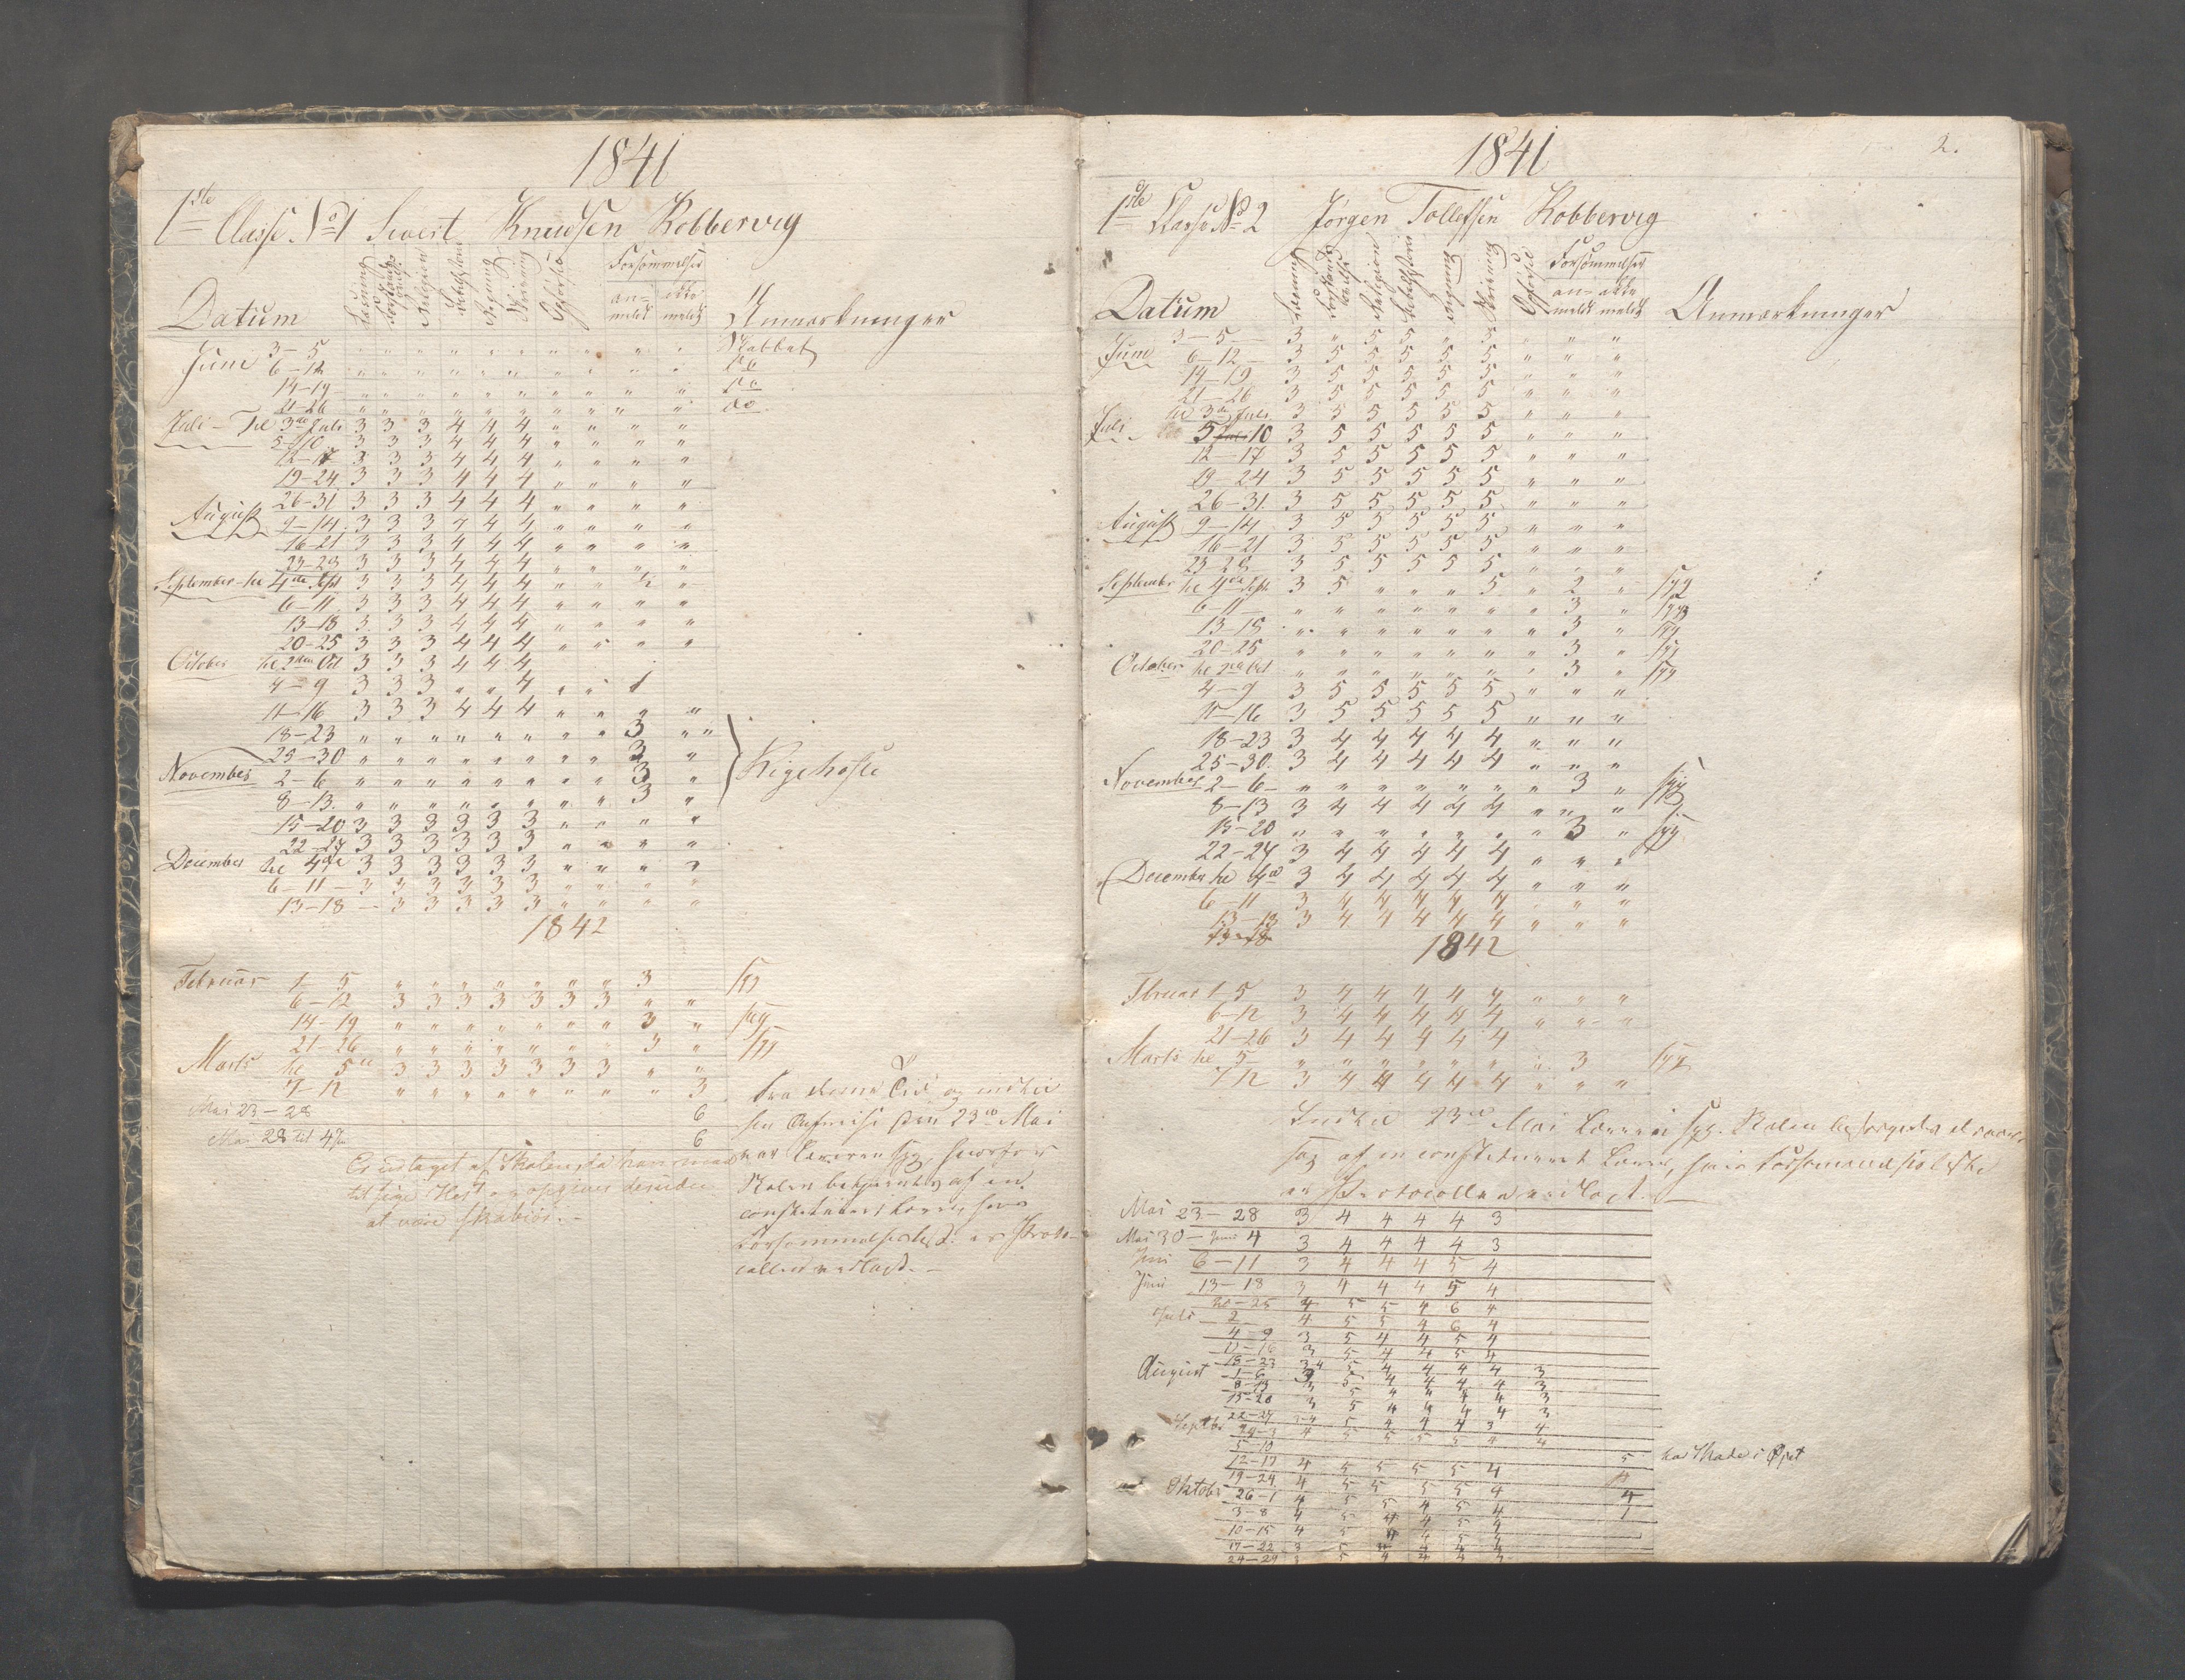 1841
1ste Classe No 1 Sivert Knudsen Kobbervig
Forsømmelser
Datum Læsning Religion Regning Skrivning Opførsel an-meldt ikke meldt Anmærkninger
Juni 3-5 " " " " " " " " " Skabbet
6-12 " " " " " " " " " do
14-19 " " " " " " " " " do
21-26 " " " " " " " " " do
Juli - Til 3die Juli 3 3 3 4 4 4 " " " "
5-10 3 3 3 4 4 4 " " " "
12-17 3 3 3 4 4 4 " " " "
19-24 3 3 3 4 4 4 " " " "
26-31 3 3 3 4 4 4 " " " "
August 9-14 3 3 3 4 4 4 " " " "
16-21 3 3 3 4 4 4 " " " "
23-28 3 3 3 4 4 4 " " " "
September til 4de Sept 3 3 3 4 4 4 " " 1/2 "
6-11 3 3 3 4 4 4 " " " "
13-18 3 3 3 4 4 4 " " " "
20-25 3 3 3 4 4 4 " " " "
October til 2den Oct 3 3 3 4 4 4
4-9 3 3 3 " " 4 " " 1
11-16 3 3 3 4 4 4 " " " "
18-23 " " " " " " " " 3 " "
25-30 " " " " " " " " 3 " Kigehoste
November 2-6 " " " " " " " " 3 "
8-13 " " " " " " " " 3 "
15-20 3 3 3 3 3 3 " " " "
22-27 3 3 3 3 3 3 " " " "
December til 4de 3 3 3 3 3 3 " " " "
6-11 - 3 3 3 3 3 3 " " " "
13-18 - 3 3 3 3 3 3 " " " "
1842
Februar 1 5 " " " " " " " 3 syg
6-12 3 3 3 3 3 3 3 " "
14-19 " " " " " " " 3 " syg
21-26 " " " " " " " 3 " syg
Marts til 5te 3 3 3 3 3 3 3 " "
7-12 " " " " " " " " 3
Mai 23-28 6
Mai 28 til 4 Ju 6
Fra denne Tid og indtil
den 23de Mai
var Læreren syg, hvorfor
Skolen betjentes af en
constitueret Lærer, hvis
Forsømmelsesliste er Proto-
collen vedlagt. -
Er udtaget af Skolen, da han
til sige Hest og opgives desuden
at være skabiøs. -
2.
1841
1ste Klasse No 2 Jørgen Tollefsen Kobbervig
Forsømmelser
Datum Læsning Religion Regning Skrivning Opførsel an-meldt ikke meldt Anmærkninger
Juni 3-5 3 " 5 5 " 5 " " "
6-12 3 5 5 5 5 5 " " "
14-19 3 5 5 5 5 5 " " "
21-26 3 5 5 5 5 5 " " "
Juli til 3die Juli 3 5 5 5 5 5 " " "
5 Juli 10 3 5 5 5 5 5 " " "
12-17 3 5 5 5 5 5 " " "
19-24 3 5 5 5 5 5 " " "
26-31. 3 5 5 5 5 5 " " "
August 9-14 3 5 5 5 5 5 " " "
16-21 3 5 5 5 5 5 " " "
23-28 3 5 5 5 5 5 " " "
September til 4de Sept. 3 5 " " " 5 " 2 " syg
6-11 " " " " " " " 3 " syg
13-18 " " " " " " " 3 " syg
20-25 " " " " " " " 3 " syg
October til 2den Oct " " " " " " " 3 " syg
4-9 3 5 5 5 5 5 " " "
11-16 3 5 5 5 5 5 " " "
18-23 3 4 4 4 4 4 " " "
25-30. 3 4 4 4 4 4 " " "
November 2-6- " " " " " " " 3 " syg
8-13 3 4 4 4 4 4 " " "
15-20 " " " " " " " 3 " syg
22-27 3 4 4 4 4 4 " " "
December til 4de 3 4 4 4 4 4 " " "
6-11 3 4 4 4 4 4 " " "
13-18 3 4 4 4 4 4 " " "
13-18
1842
Februar 1-5 3 4 4 4 4 4 " " "
6-12 3 4 4 4 4 4 " " "
21-26 3 4 4 4 4 4
Marts til 5 " " " " " " " 3 syg
7-12 3 4 4 4 4 4 " " "
Indtil 23de Mai Læreren syg. Skolen
af en constitueret Lærer, hvis Forsømmelsesliste
er Protocollen vedlagt. -
Mai 23-28 3 4 4 4 4 3
Mai 30 - Juni 4 3 4 4 4 4 3
Juni 6-11 3 4 4 4 5 4
Juni 13-18 3 4 4 4 5 4
20-25 4 5 5 4 6 4
Juli 2 4 5 5 4 6 4
4-9 3 5 4 4 5 4
11-16 3 5 4 4 5 4
18-23 3 4 5 4 4 4 4 3
August 1-6 3 5 4 4 4 4 3
8-13 3 5 4 4 4 4 3
15-20 3 5 4 4 4 4 3
22-27 3-4 5 4 4 4 3 4
Septbr 29-3 4 5 5 5 5 4 4
5-10 5 har Skade i Øjet
12-17 4 5 5 5 5 4
19-24 4 5 5 5 5 4 4
Oktobr 26-1 4 5 5 4 5 4 1
3-8 4 5 4 4 5 4
10-15 4 5 4 4 5 4
17-22 3 5 4 4 4 4
24-29 3 5 4 4 4 4